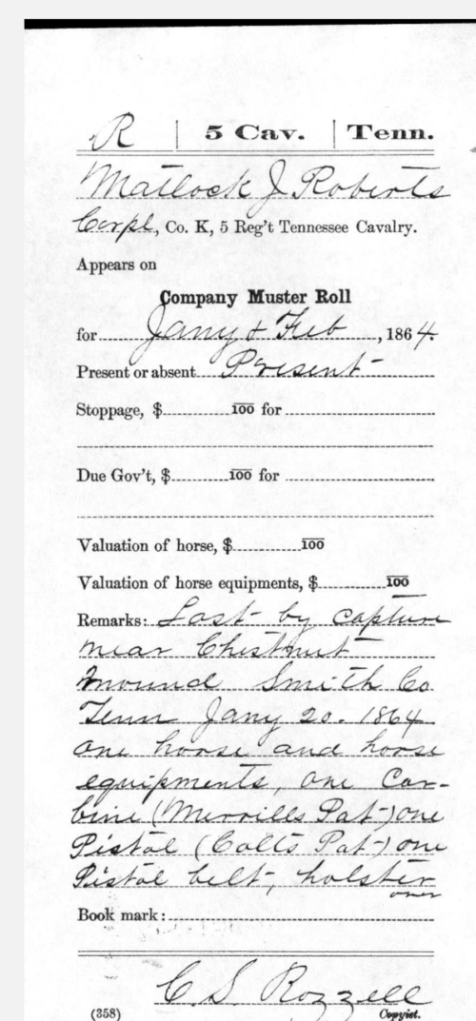 R | 5 Cav. | Tenn.
Matlock J Roberts
Corpl, Co. K, 5 Reg't Tennessee Cavalry.
Appears on
Company Muster Roll
for Jany & Feb, 1864.
Present or absent Present
Stoppage, $ 100 for
Due Gov't, $ 100 for
Valuation of horse, $ 100
Valuation of horse equipments, $ 100
Remarks: Lost by capture
near Chestnut
Mound Smith Co
Tenn Jany 20. 1864
one horse and horse
equipments, one Car-
bine (Merrills Pat) one
Pistol (Colts Pat) one
Pistol belt, holster
over
Book mark:
C. S. Rozzell
(358) Copyist.